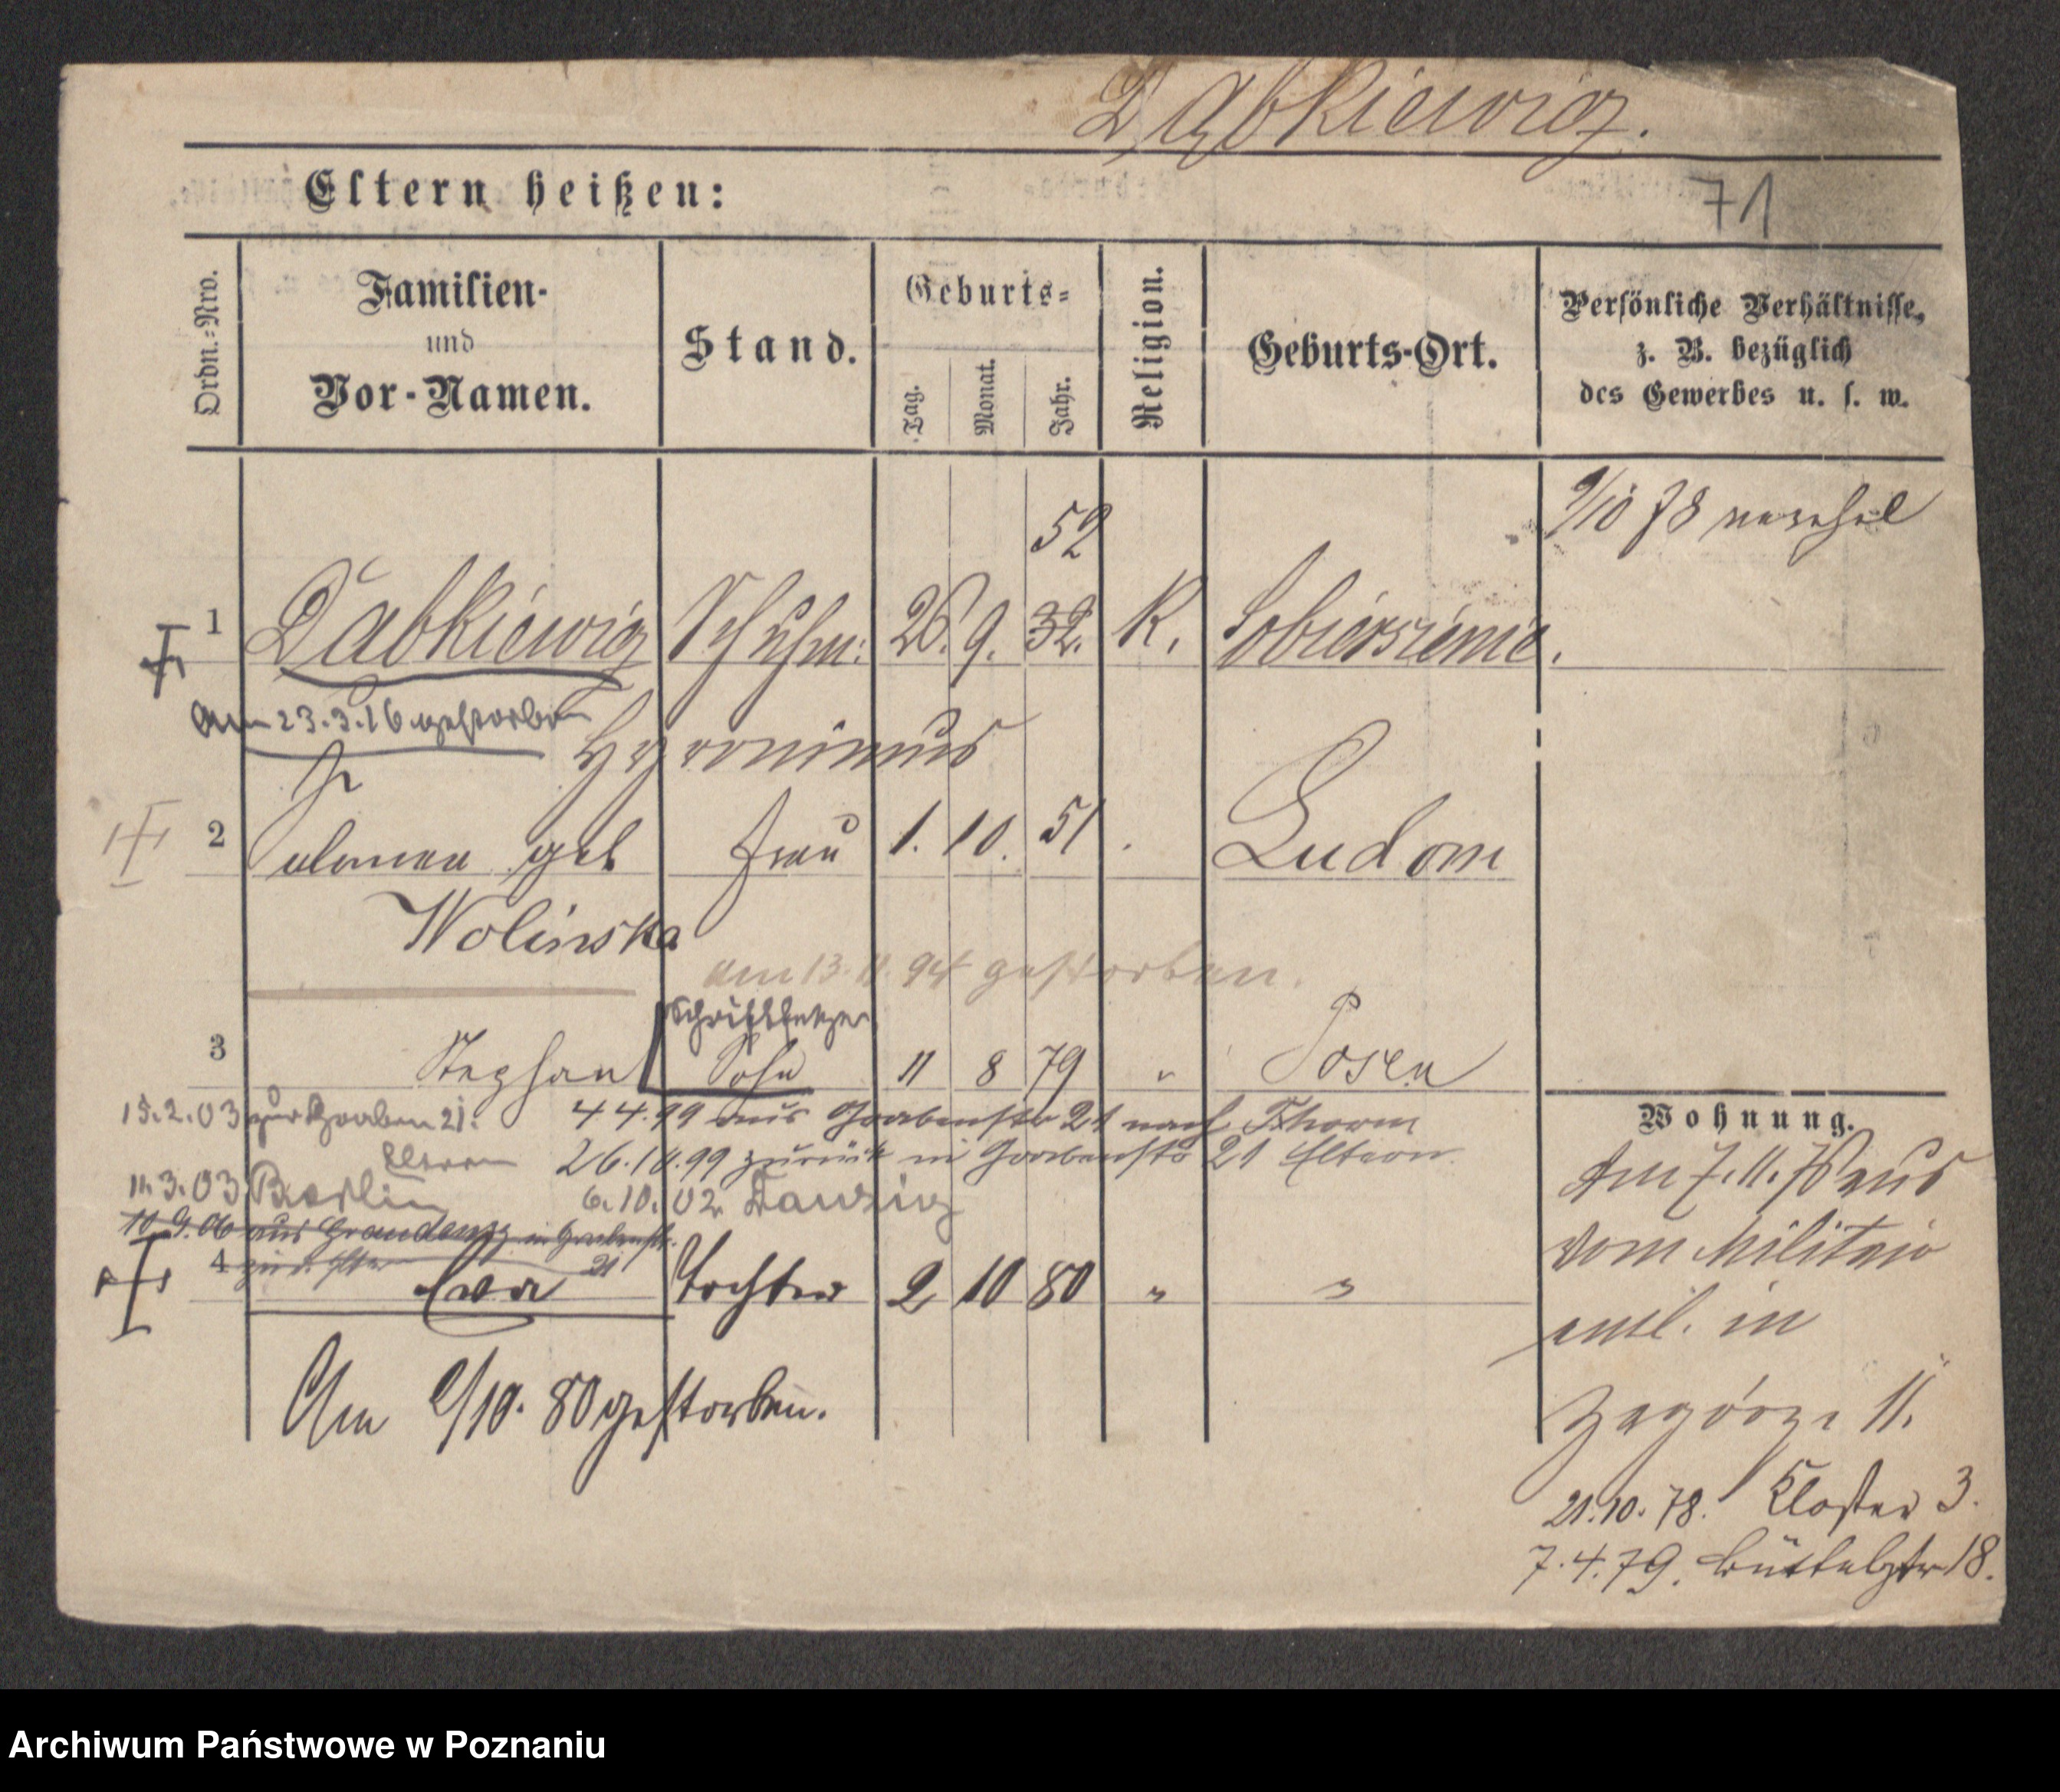 Dąbkiewicz.
Eltern heißen:
71
Ordn.=Nro.
Familien-
und
Vor-Namen.
Stand.
Geburts=
Tag.
Monat.
Jahr.
Religion.
Geburts-Ort.
Persönliche Verhältnisse,
z. B. bezüglich
des Gewerbes u. s. w.
9/10 78
52
1 Dąbkiewicz Schuhm: 26. 9. 32. K. Sobiersiernie.
am 23.3.16 gestorben
Hyronimus
2 geb Frau 1. 10. 51 Ludom
Wolinska
am 13. 11. 94 gestorben.
Schriftsetzer
3 Stephan Sohn 11 8 79 " Posen
15.2.03 zur Graben 21.
Eltern
4 4.99 aus Grabenstr 21 nach Thorn
26.10.99 zurück in Grabenstr 21 Eltern
11.3.03 Berlin
6.10.02 Danzig
10.9.06 aus Graudenz in Grabenstr.
21
4 Eva Tochter 2 10 80 " "
Am 9/10. 80 gestorben.
Wohnung.
Am 7.11.78 aus
vom Militair
entl. in
Zagórze 11.
21.10.78. Kloster 3.
7.4.79. Büttelstr 18.
Archiwum Państwowe w Poznaniu